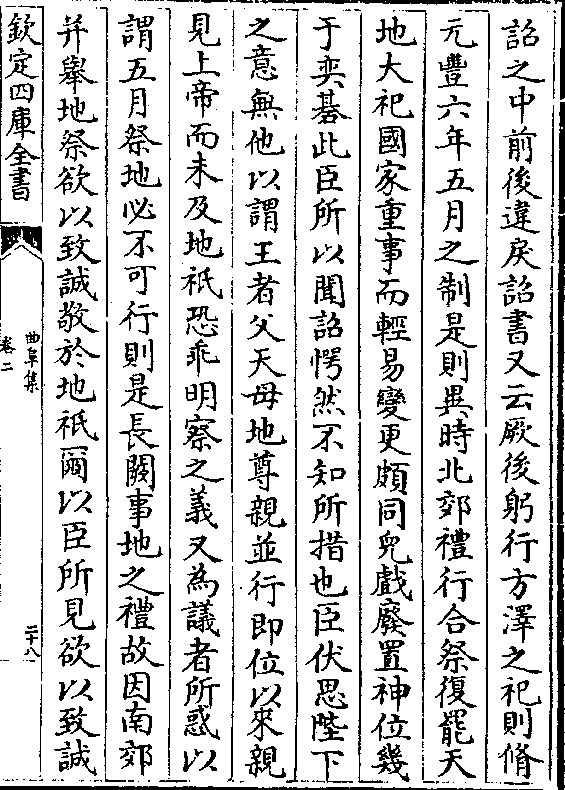 詔之中前後違戾詔書又云厥後躬行方澤之祀則脩
元豐六年五月之制是則異時北郊禮行合祭復罷天
地大祀國家重事而輕易變更頗同兒戲廢置神位幾
于奕棊此臣所以聞詔愕然不知所措也臣伏思陛下
之意無他以謂王者父天母地尊親並行即位以來親
見上帝而未及地祇恐乖明察之義又為議者所惑以
謂五月祭地必不可行則是長闕事地之禮故因南郊
并舉地祭欲以致誠敬於地祇爾以臣所見欲以致誠
欽定四庫全書
曲阜集
卷二
二十八